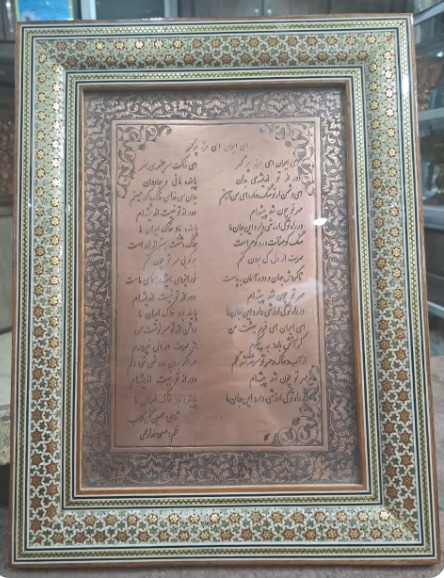 ای ایران ای مرز پر گهر
ای ایران ای مرز پر گهر ای خاکت سرچشمه هنر
دور از تو اندیشه بدان پاینده مانی و جاودان
ای دشمن ار تو سنگ خاره ای من آهنم جان من فدای خاک پاک میهنم
مهر تو چون شد پیشه ام دور از تو نیست اندیشه ام
در راه تو کی ارزشی دارد این جان ما پاینده باد خاک ایران ما
سنگ کوهت در و گوهر است خاک دشتت بهتر از زر است
مهرت از دل کی برون کنم برگو بی مهر تو چون کنم
تا گردش جهان و دور آسمان بپاست نور ایزدی همیشه رهنمای ماست
مهر تو چون شد پیشه ام دور از تو نیست اندیشه ام
در راه تو کی ارزشی دارد این جان ما پاینده باد خاک ایران ما
ای ایران ای خرم بهشت من روشن از تو سرنوشت من
گر آتش بارد به پیکرم جز مهرت در دل نپرورم
از آب و خاک و مهر تو سرشته شد گلم مهر اگر برون رود تهی شود دلم
مهر تو چون شد پیشه ام دور از تو نیست اندیشه ام
در راه تو کی ارزشی دارد این جان ما پاینده باد خاک ایران ما
حسین گل گلاب
قلم: مسعود